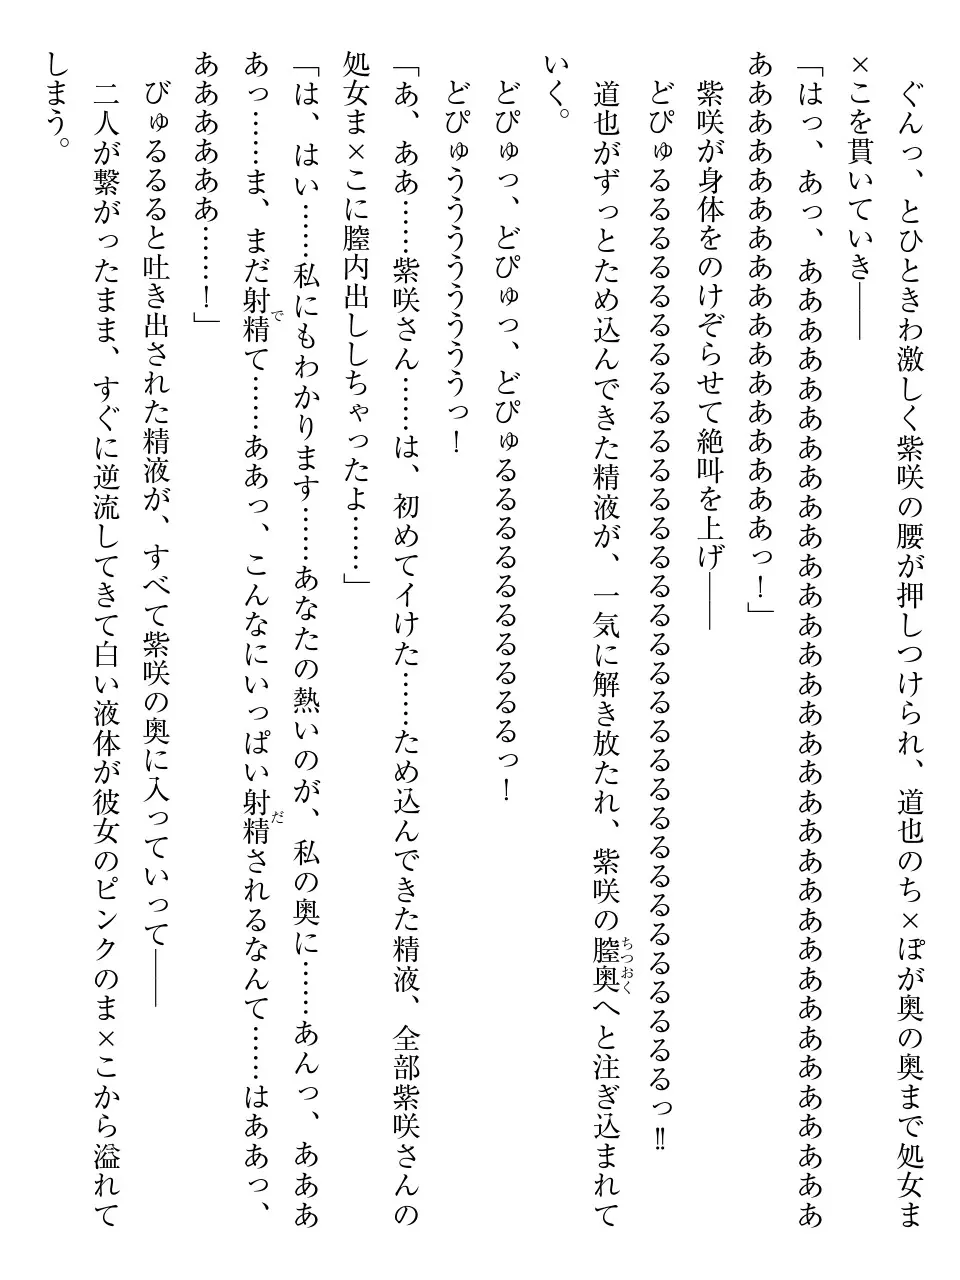 ぐんっ、とひときわ激しく紫咲の腰が押しつけられ、道也のち×ぽが奥の奥まで処女ま
×こを貫いていき――
「はっ、あっ、あああああああああああああああああああああああああああああああああ
あああああああああああああああああっ！」
　紫咲が身体をのけぞらせて絶叫を上げ――
　どぴゅるるるるるるるるるるるるるるるるるるるるるるるるるるるるるるるるっ‼
　道也がずっとため込んできた精液が、一気に解き放たれ、紫咲の膣奥（ちつおく）へと注ぎ込まれて
いく。
　どぴゅっ、どぴゅっ、どぴゅるるるるるるるるるるっ！
　どぴゅううううううううっ！
「あ、ああ……紫咲さん……は、初めてイけた……ため込んできた精液、全部紫咲さんの
処女ま×こに膣内出ししちゃったよ……」
「は、はい……私にもわかります……あなたの熱いのが、私の奥に……あんっ、あああ
あっ……ま、まだ射精（で）て……ああっ、こんなにいっぱい射精（だ）されるなんて……はああっ、
ああああああ……！」
　びゅるるると吐き出された精液が、すべて紫咲の奥に入っていって――
　二人が繋がったまま、すぐに逆流してきて白い液体が彼女のピンクのま×こから溢れて
しまう。